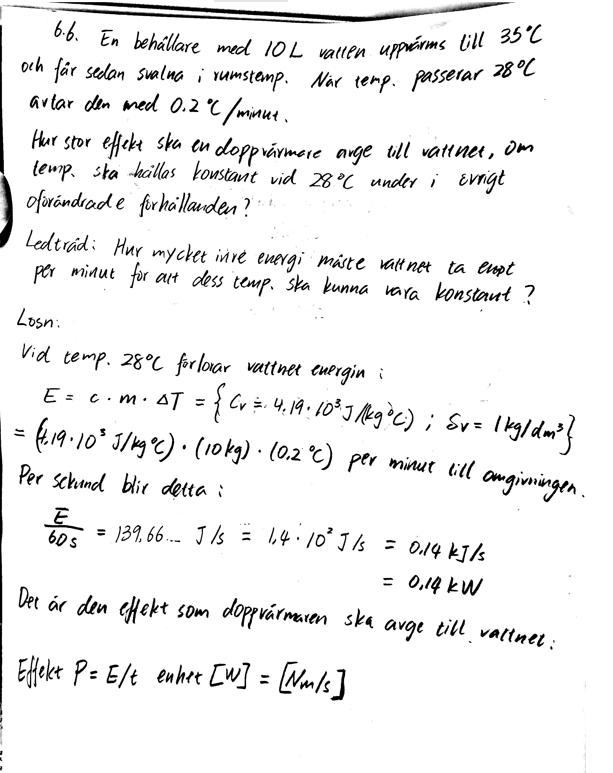 6.6. En behållare med 10 L vatten uppvärms till 35°C
och får sedan svalna i rumstemp. När temp. passerar 28°C
avtar den med 0.2 °C/minut.
Hur stor effekt ska en doppvärmare avge till vattnet, om
temp. ska hållas konstant vid 28°C under i övrigt
oförändrade förhållanden?
Ledtråd: Hur mycket inre energi måste vattnet ta emot
per minut för att dess temp. ska kunna vara konstant?
Lösn:
Vid temp. 28°C förlorar vattnet energin:
E = c · m · ΔT = { Cv = 4.19 · 10³ J/(kg°C) ; Sv = 1 kg/dm³ }
= (4.19 · 10³ J/kg°C) · (10 kg) · (0.2 °C) per minut till omgivningen.
Per sekund blir detta:
E/60s = 139,66... J/s = 1,4 · 10² J/s = 0,14 kJ/s
= 0,14 kW
Det är den effekt som doppvärmaren ska avge till vattnet:
Effekt P = E/t enhet [W] = [Nm/s]